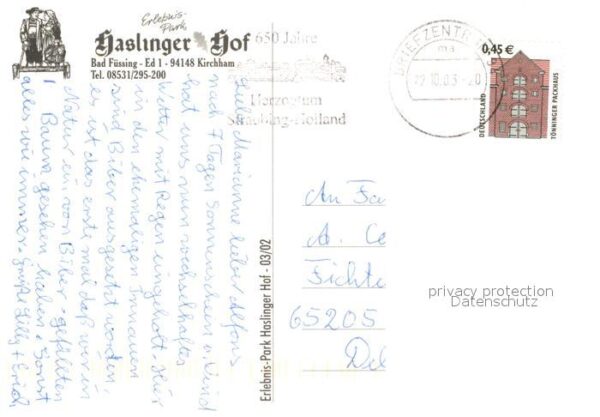 Erlebnis-
Park
Haslinger Hof
Bad Füssing - Ed 1 - 94148 Kirchham
Tel. 08531/295-200
650 Jahre
Herzogtum
Straubing-Holland
BRIEFZENTR
ma
19.10.03 - 20
0,45 €
DEUTSCHLAND
TÖNNINGER PACKHAUS
Liebe Marianne lieber Alfons
nach 7 Tagen Sonnenschein u. Wind
hat uns nun wechselhaftes
Wetter mit Regen eingeholt. Hier
in den ehemaligen Innauen
sind Biber ausgesetzt worden,
es ist das erste mal daß wir in
Natur ein von Biber-gefällten
Baum gesehen haben. Sonst
alles wie immer. Grüße Lilly + Erich
Erlebnis-Park Haslinger Hof - 03/02
An Fa
A. Ce
Fichte
65205
Del
privacy protection
Datenschutz